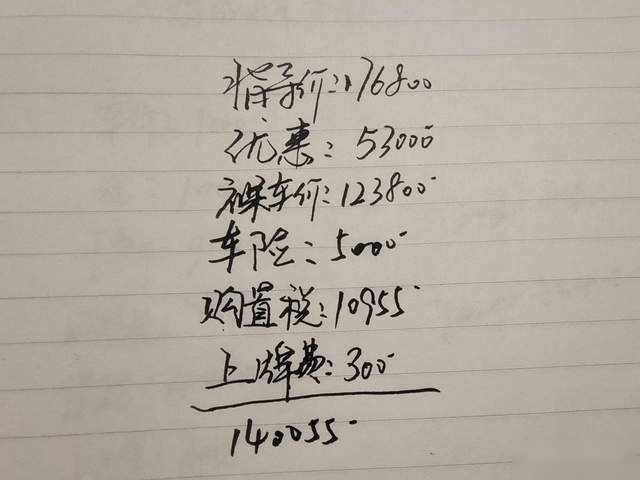 指导价:176800
优惠:53000
裸车价:123800
车险:5000
购置税:10955
上牌费:300
140055